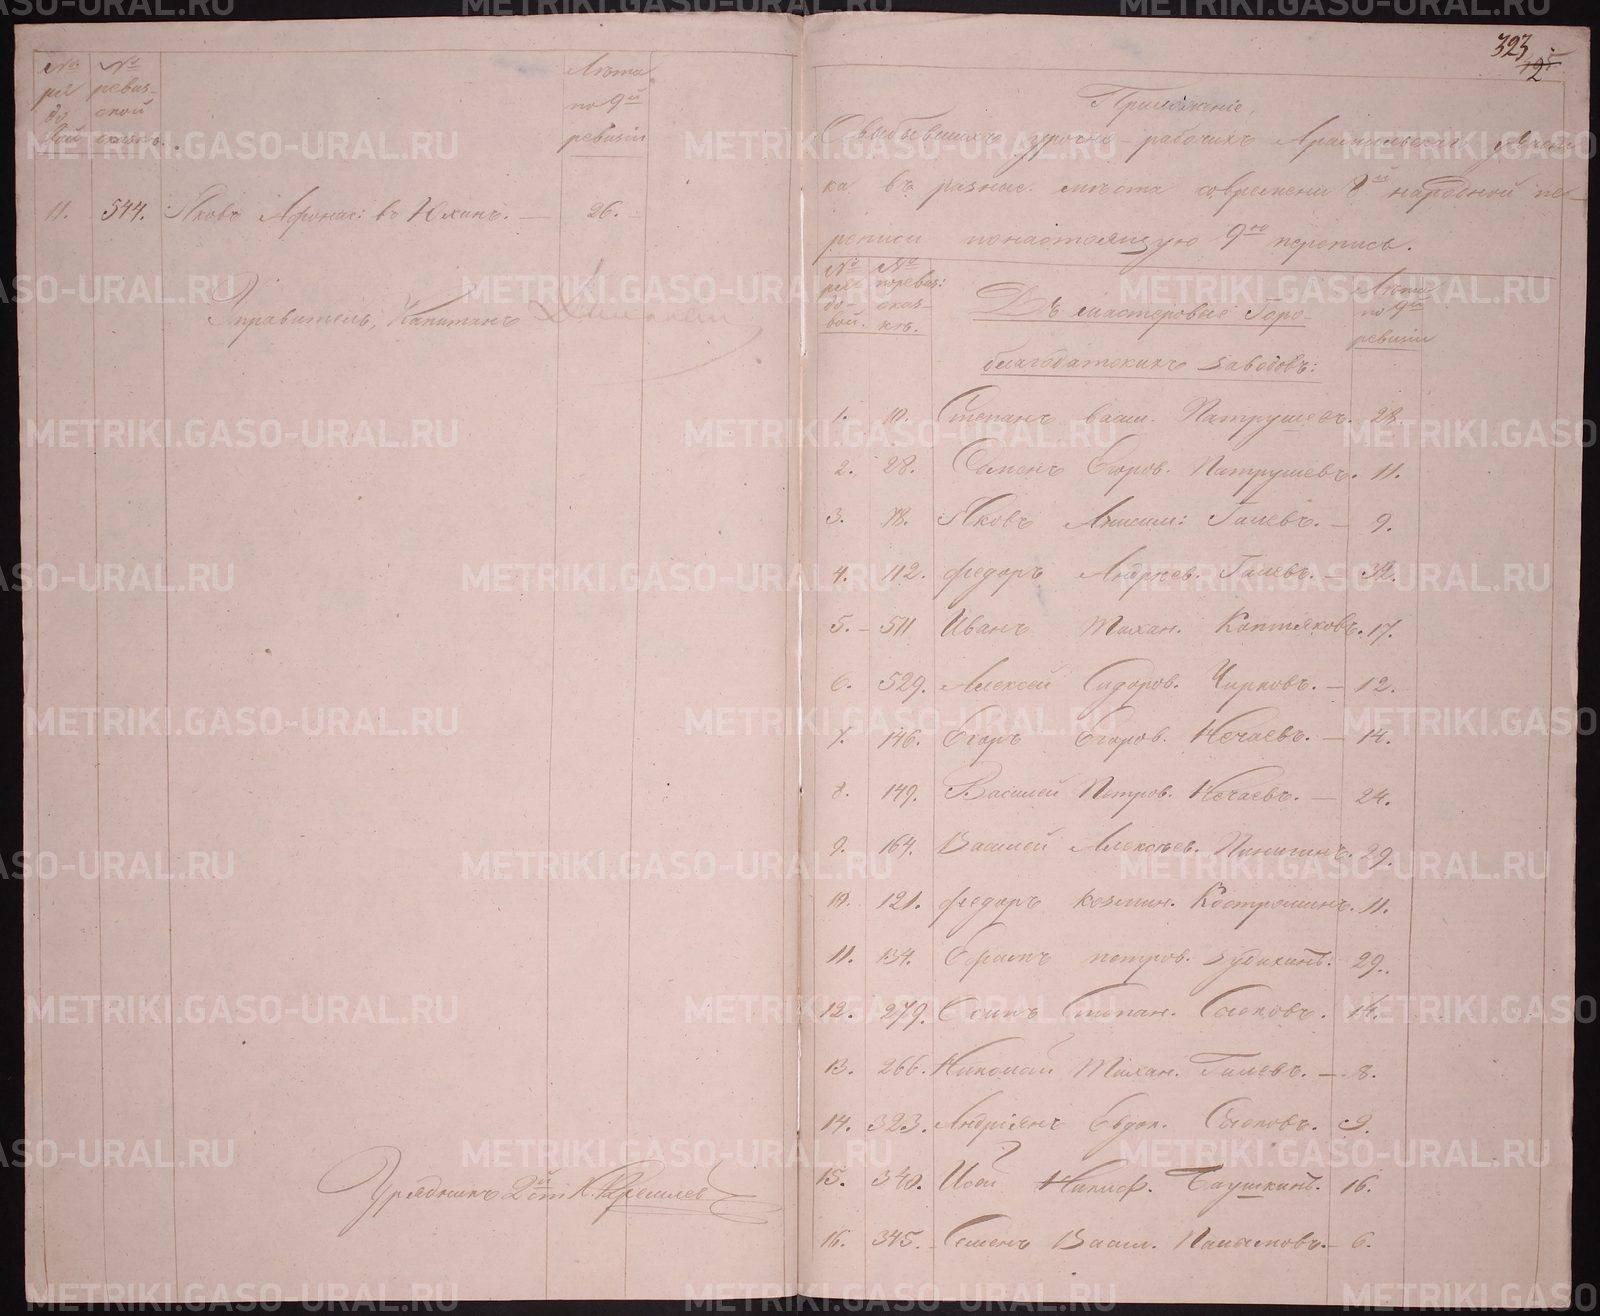 № ря до вой
№ ревиз- ской сказк.
Лѣта по 9й ревизіи
11. 544. Яковъ Афонас: въ Юхинъ. — 26.
Управитель, Капитанъ
Урядникъ 2й ст.
323
12
Приложеніе,
О выбывшихъ урочно-рабочихъ Арамильскаго
ка въ разные мѣста со времени 8й народной пе-
реписи по настоящую 9ю перепись.
№ ря до- вой.
№ по ревиз: сказ- кѣ.
Въ мастеровые Горо-
благодатскихъ заводовъ:
Лѣта по 9й ревизіи
1. 10. Степанъ Васил. Патрушевъ. 28.
2. 28. Семенъ Егоров. Патрушевъ. 11.
3. 78. Яковъ Анисим: Галевъ. — 9.
4. 112. Федоръ Андреев. Галевъ. — 32.
5. — 511 Иванъ Михан. Коптяковъ. 17.
6. 529. Алексей Сидоров. Чирковъ. — 12.
7. 146. Егоръ Егоров. Нечаевъ. — 14.
8. 149. Василей Петров. Нечаевъ. — 24.
9. 164. Василей Алексѣев. Пинигинъ. 29.
10. 121. Федоръ Козмин. Костроминъ. 11.
11. 134. Ефимъ Петров. Зубакинъ. 29.
12. 279. Осипъ Степан. Сысковъ. 14.
13. 266. Николай Михан. Галевъ. — 8.
14. 323. Андріянъ Евдок. Сысковъ. 9.
15. 340. Исай Никиф. Баушкинъ. 16.
16. 345. Семенъ Васил. 6.
METRIKI.GASO-URAL.RU